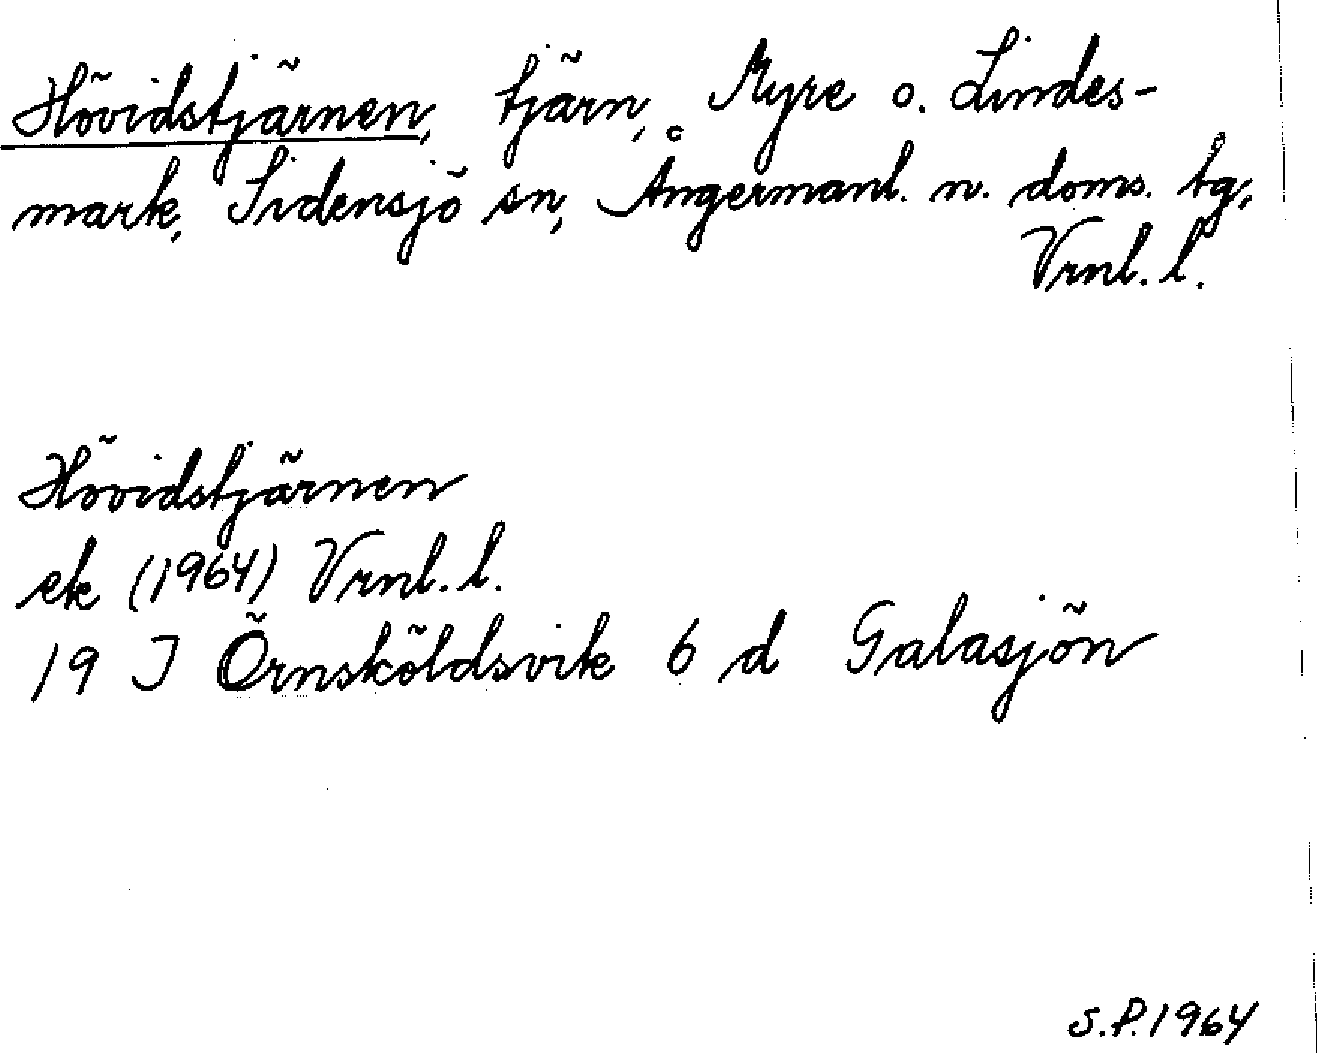 Hövidstjärnen, tjärn, Myre o. Lindes-
mark, Sidensjö sn, Ångermanl. n. doms. tg,
Vrnl. l.
Hövidstjärnen
ek (1964) Vrnl. l.
19 J Örnsköldsvik 6 d Galasjön
S.P. 1964